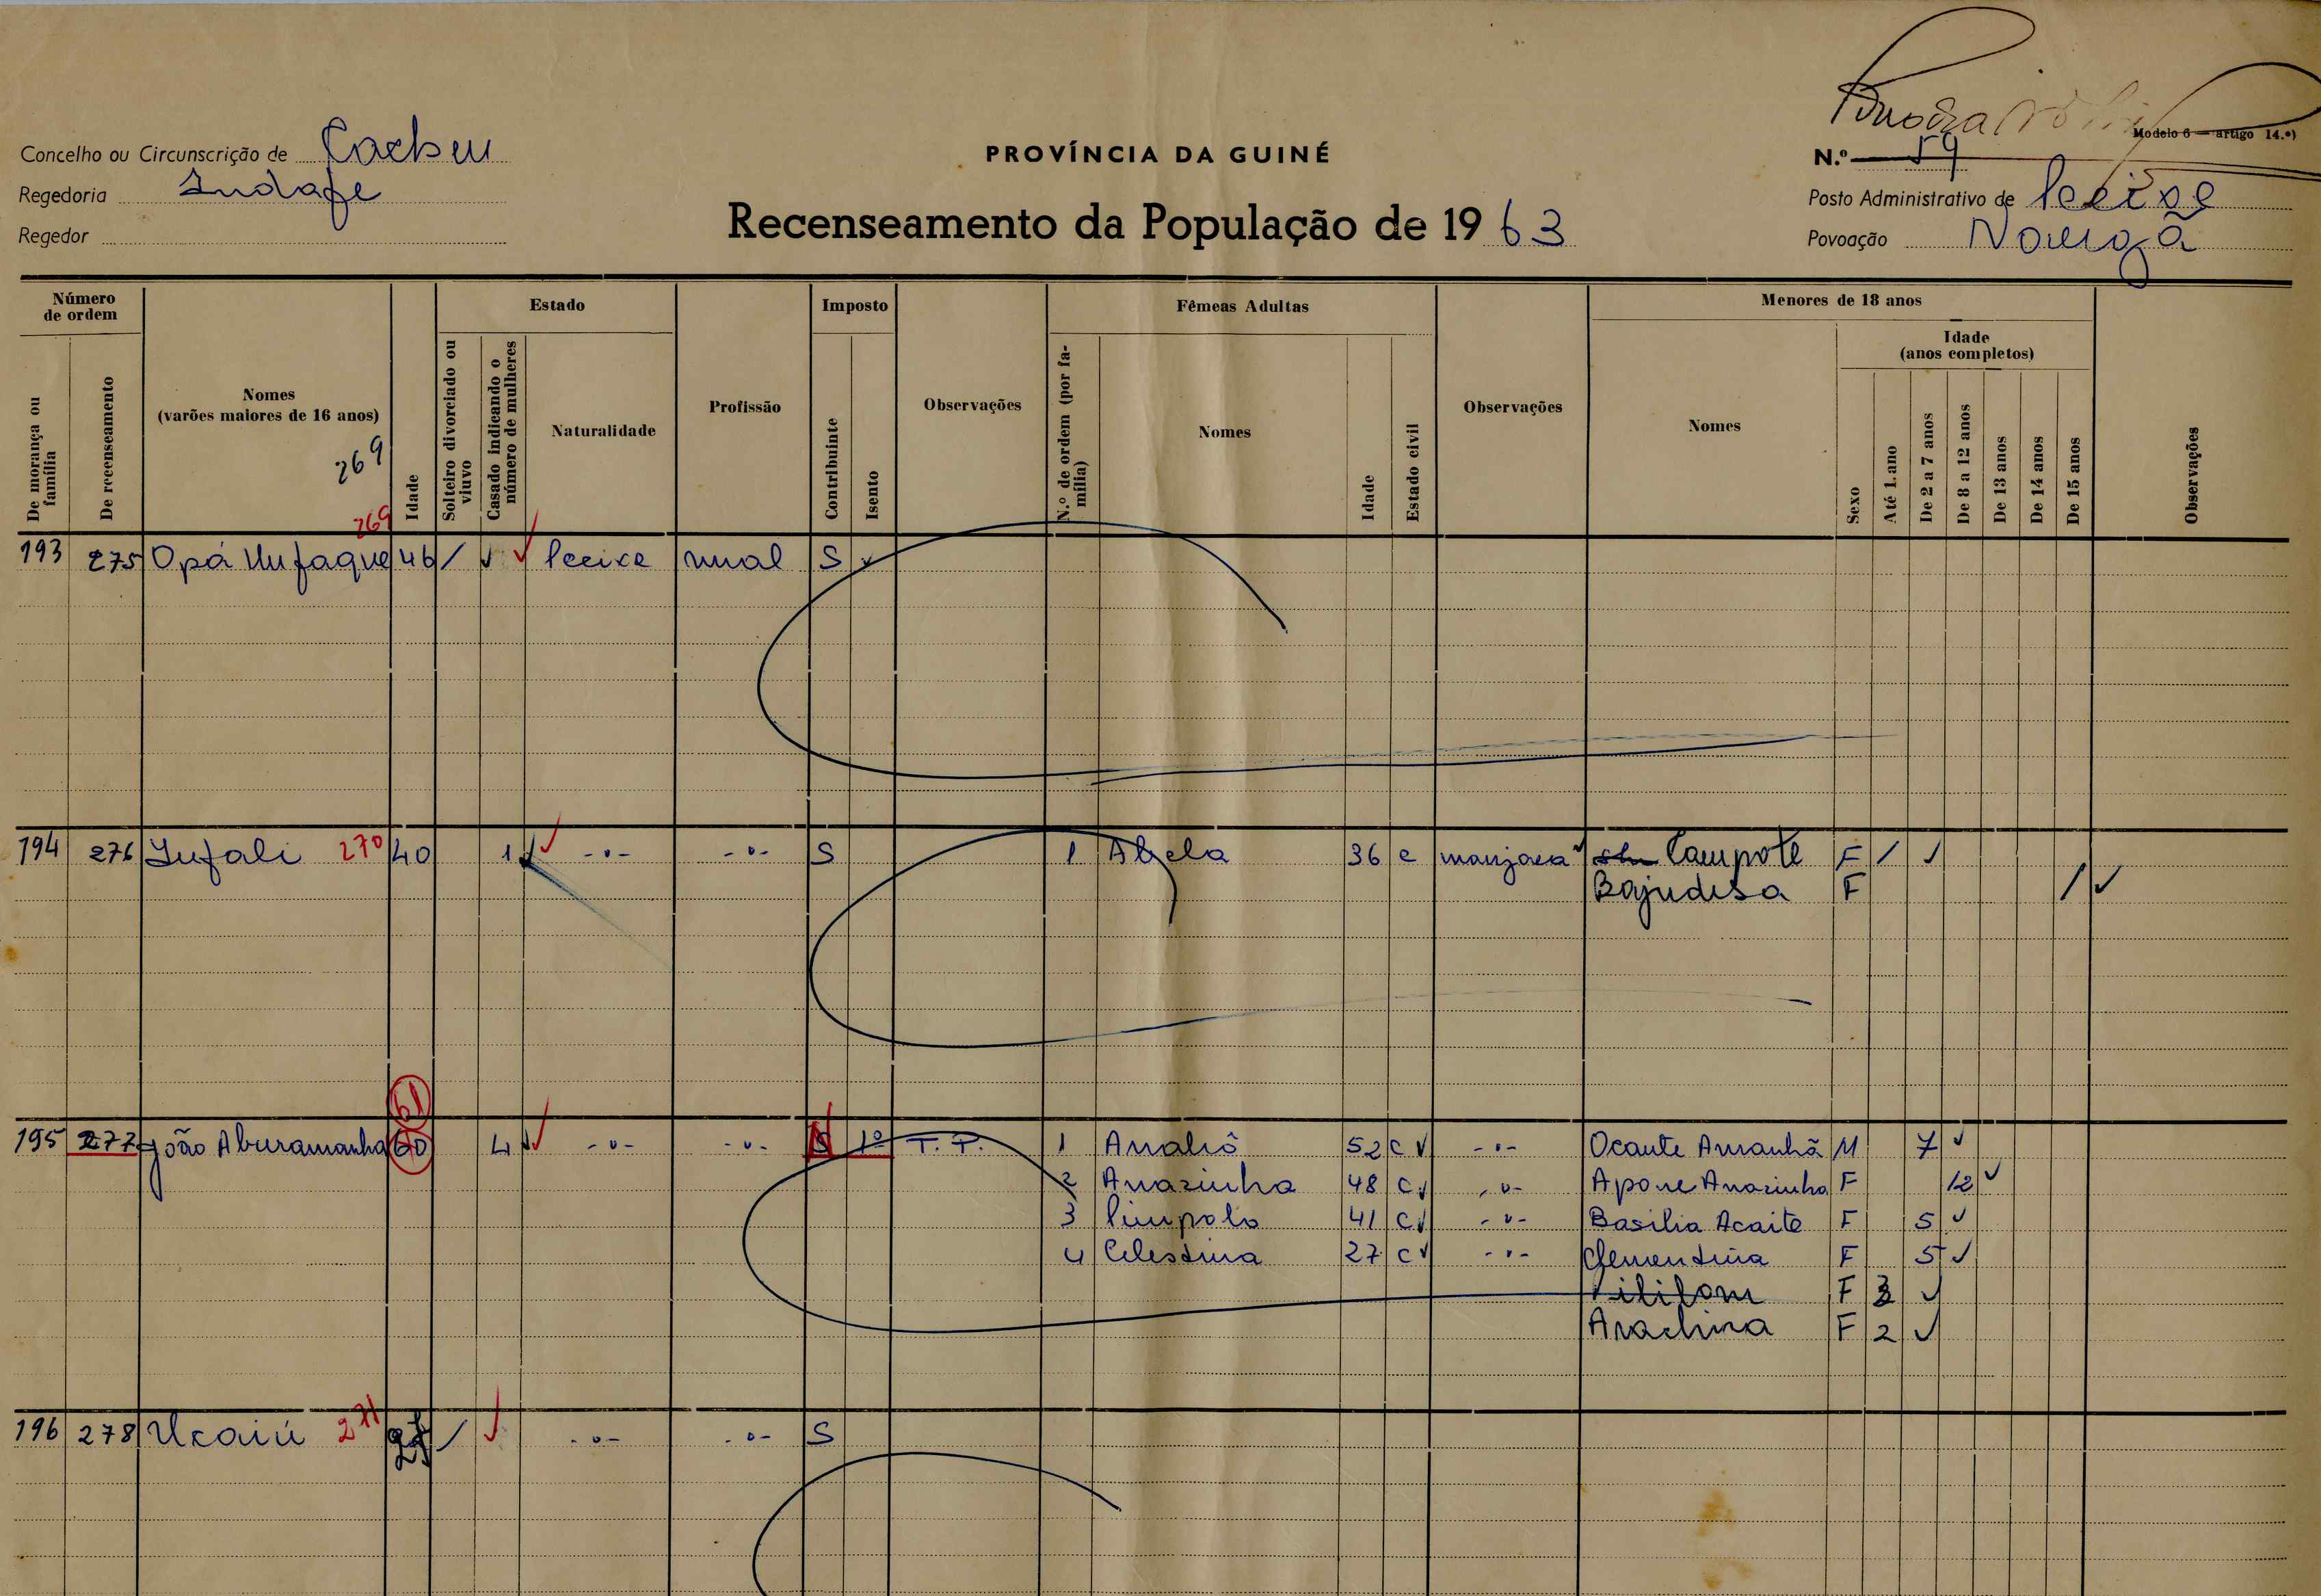 Modelo 6 — artigo 14.º)
Concelho ou Circunscrição de Cacheu
PROVÍNCIA DA GUINÉ
N.º 59
Regedoria Indafe
Recenseamento da População de 1963
Posto Administrativo de
Regedor
Povoação
Número de ordem
Estado
Imposto
Fêmeas Adultas
Menores de 18 anos
Idade (anos completos)
De morança ou família
De recenseamento
Nomes (varões maiores de 16 anos)
269
269
Idade
Solteiro divorciado ou viuvo
Casado indicando o número de mulheres
Naturalidade
Profissão
Contribuinte
Isento
Observações
N.º de ordem (por família)
Nomes
Idade
Estado civil
Observações
Nomes
Sexo
Até 1.ano
De 2 a 7 anos
De 8 a 12 anos
De 13 anos
De 14 anos
De 15 anos
Observações
193 275 Opá Unfaque 46 / rural S
194 276 Jufali 270 40 1 -"- -"- S 1 Abela 36 c manjaca Campote F /
Bajudesa F /
61
195 277 João Aburamanha 60 4 -"- -"- S 1º T. P. 1 52 c -"- Ocante Amanhã M 7
2 Anasinha 48 c -"- Apone Anasinha F 12
3 41 c -"- Basilia Acaite F 5
4 Celestina 27 c -"- Clementina F 5
F 3
F 2
196 278 Ucaiú 271 / -"- -"- S